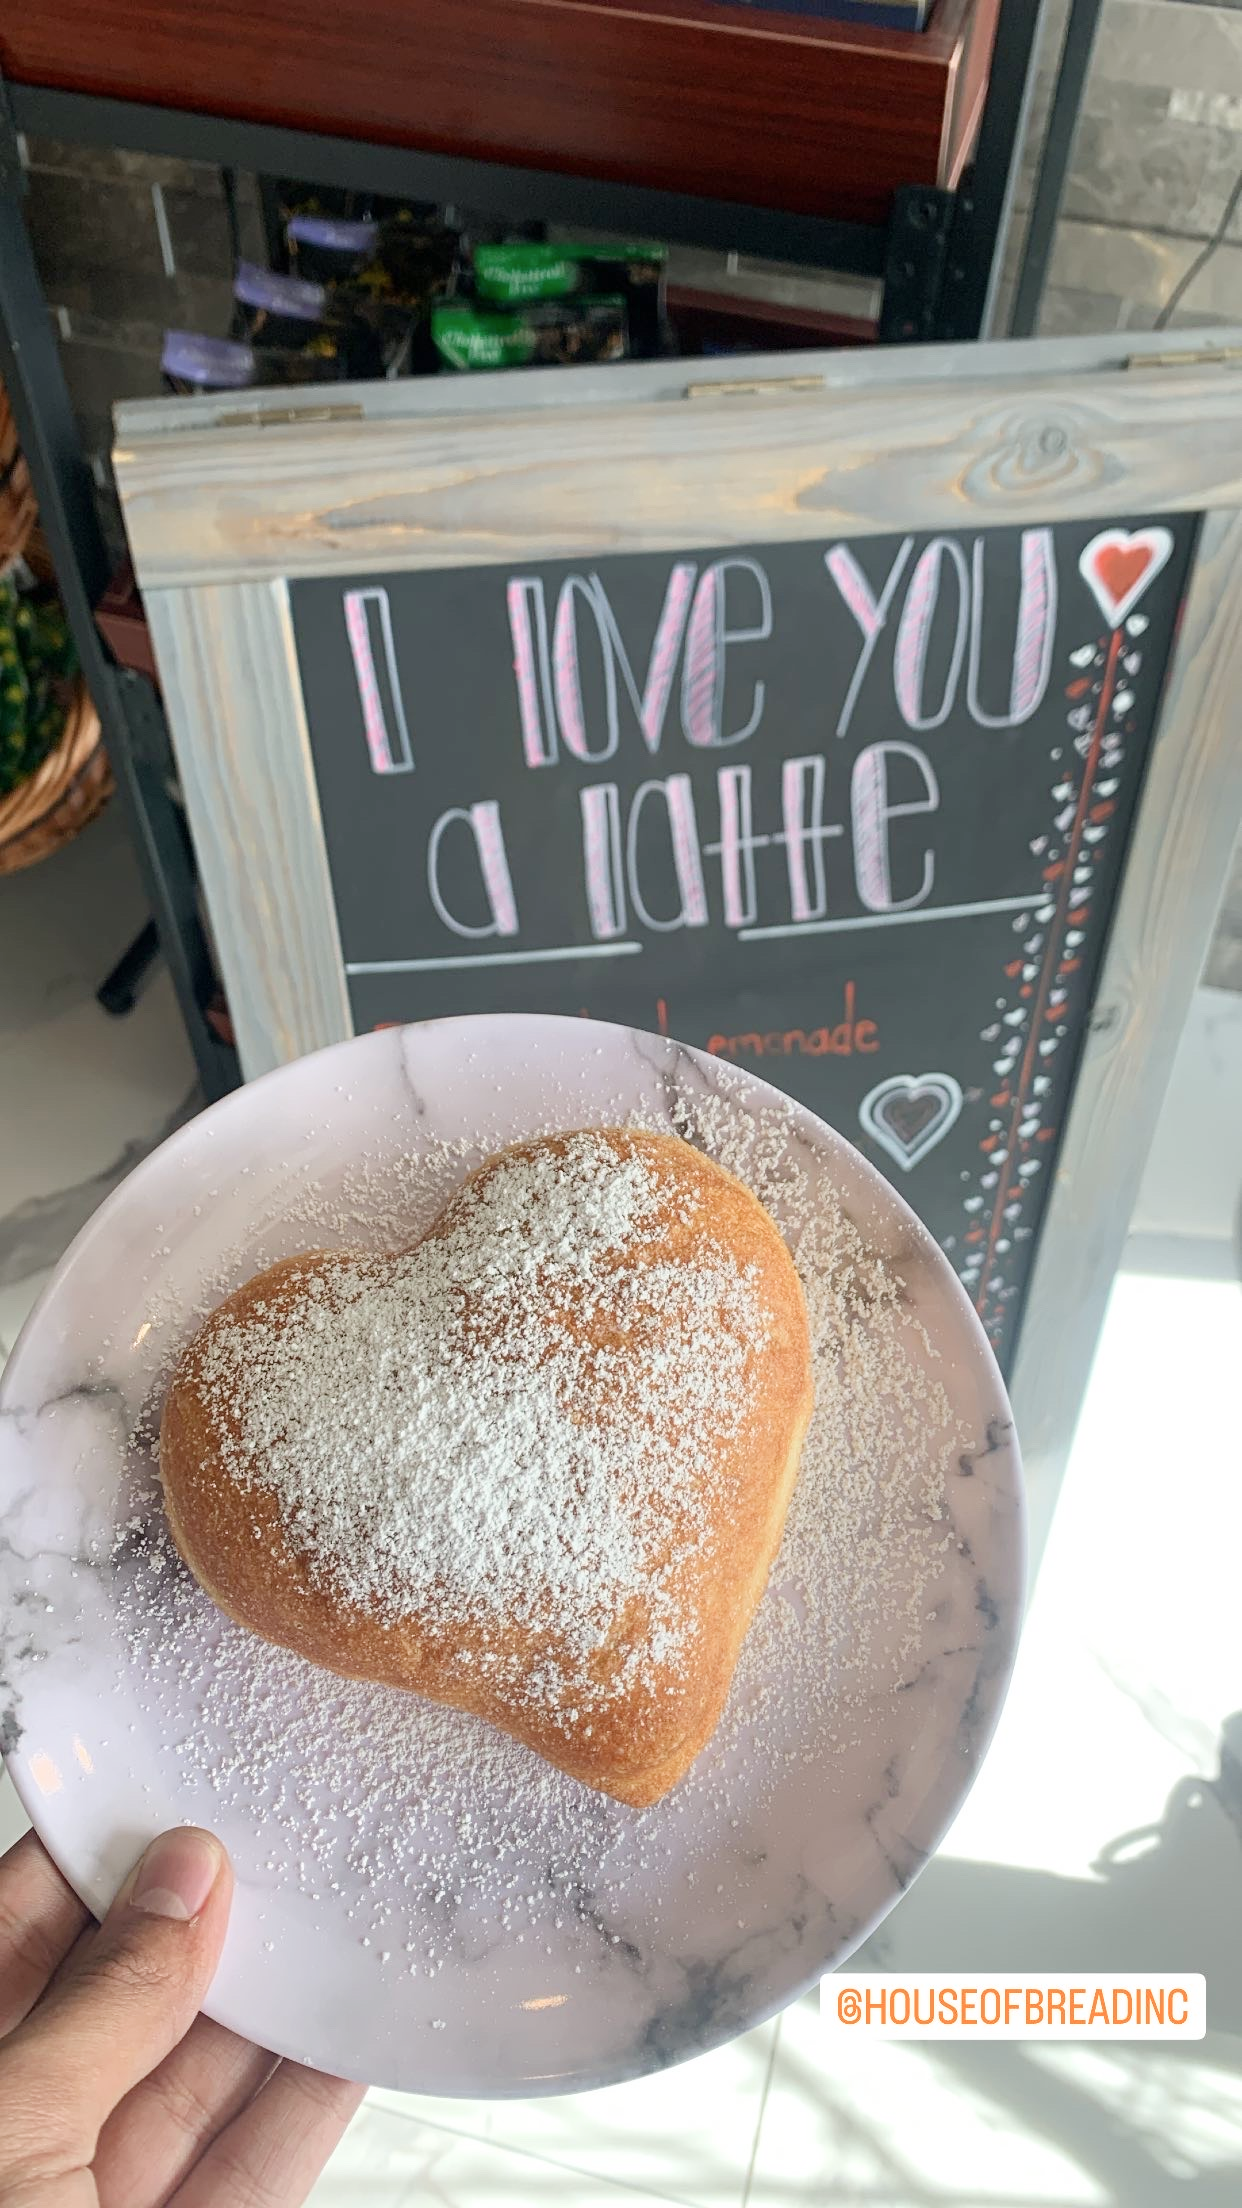 I love you
a latte
emonade
@HOUSEOFBREADINC